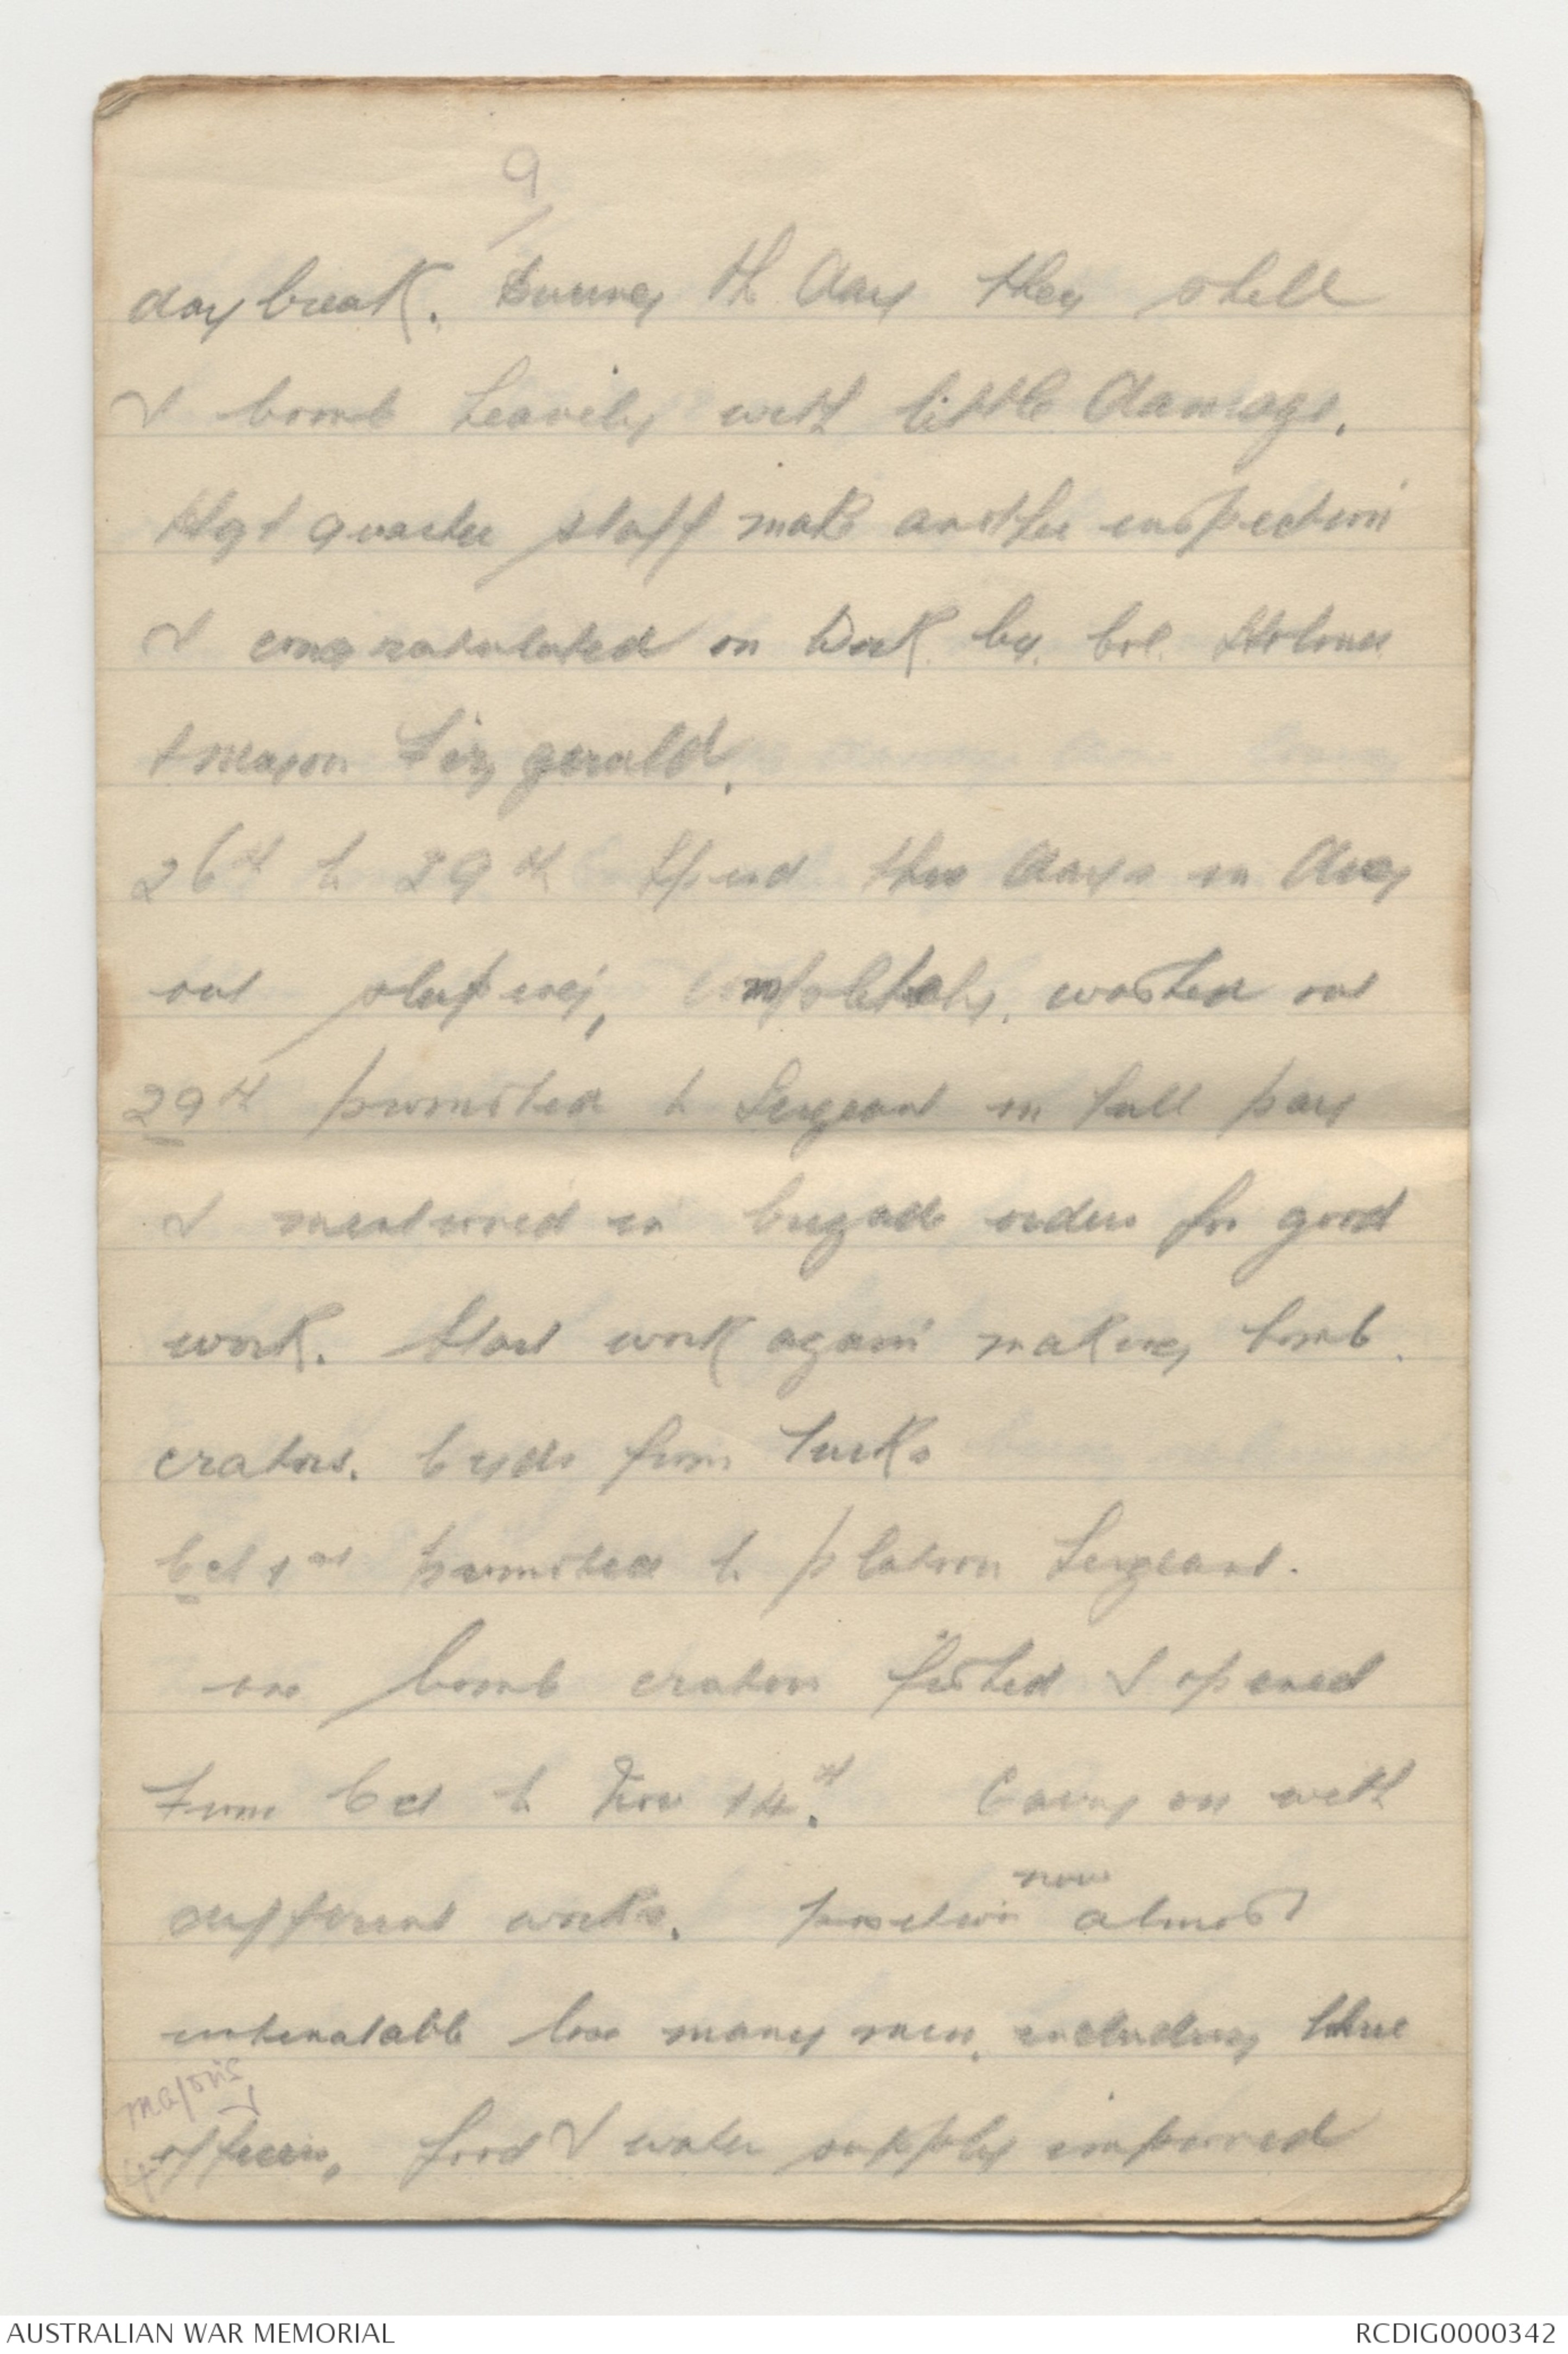 9
daybreak. During the day they shell
& bomb heavily with little damage.
Hqt quarter staff make another inspection
& congratulated on work by. Col. Holmes
& Major Fitzgerald.
26th to 29th Spend this days in dug
out sleeping, completely, washed out
29th promoted to Sergeant on full pay
& mentioned in brigade orders for good
work. Start work again making bomb
craters. 6 yds from Turks
Oct 1st promoted to platoon Sergeant.
our bomb craters finished & opened
From Oct to Nov 14th. Carry on with
different works. position now almost
untenatable loss many men, including three
majors &
4 officers, food & water supply improved
AUSTRALIAN WAR MEMORIAL
RCDIG0000342